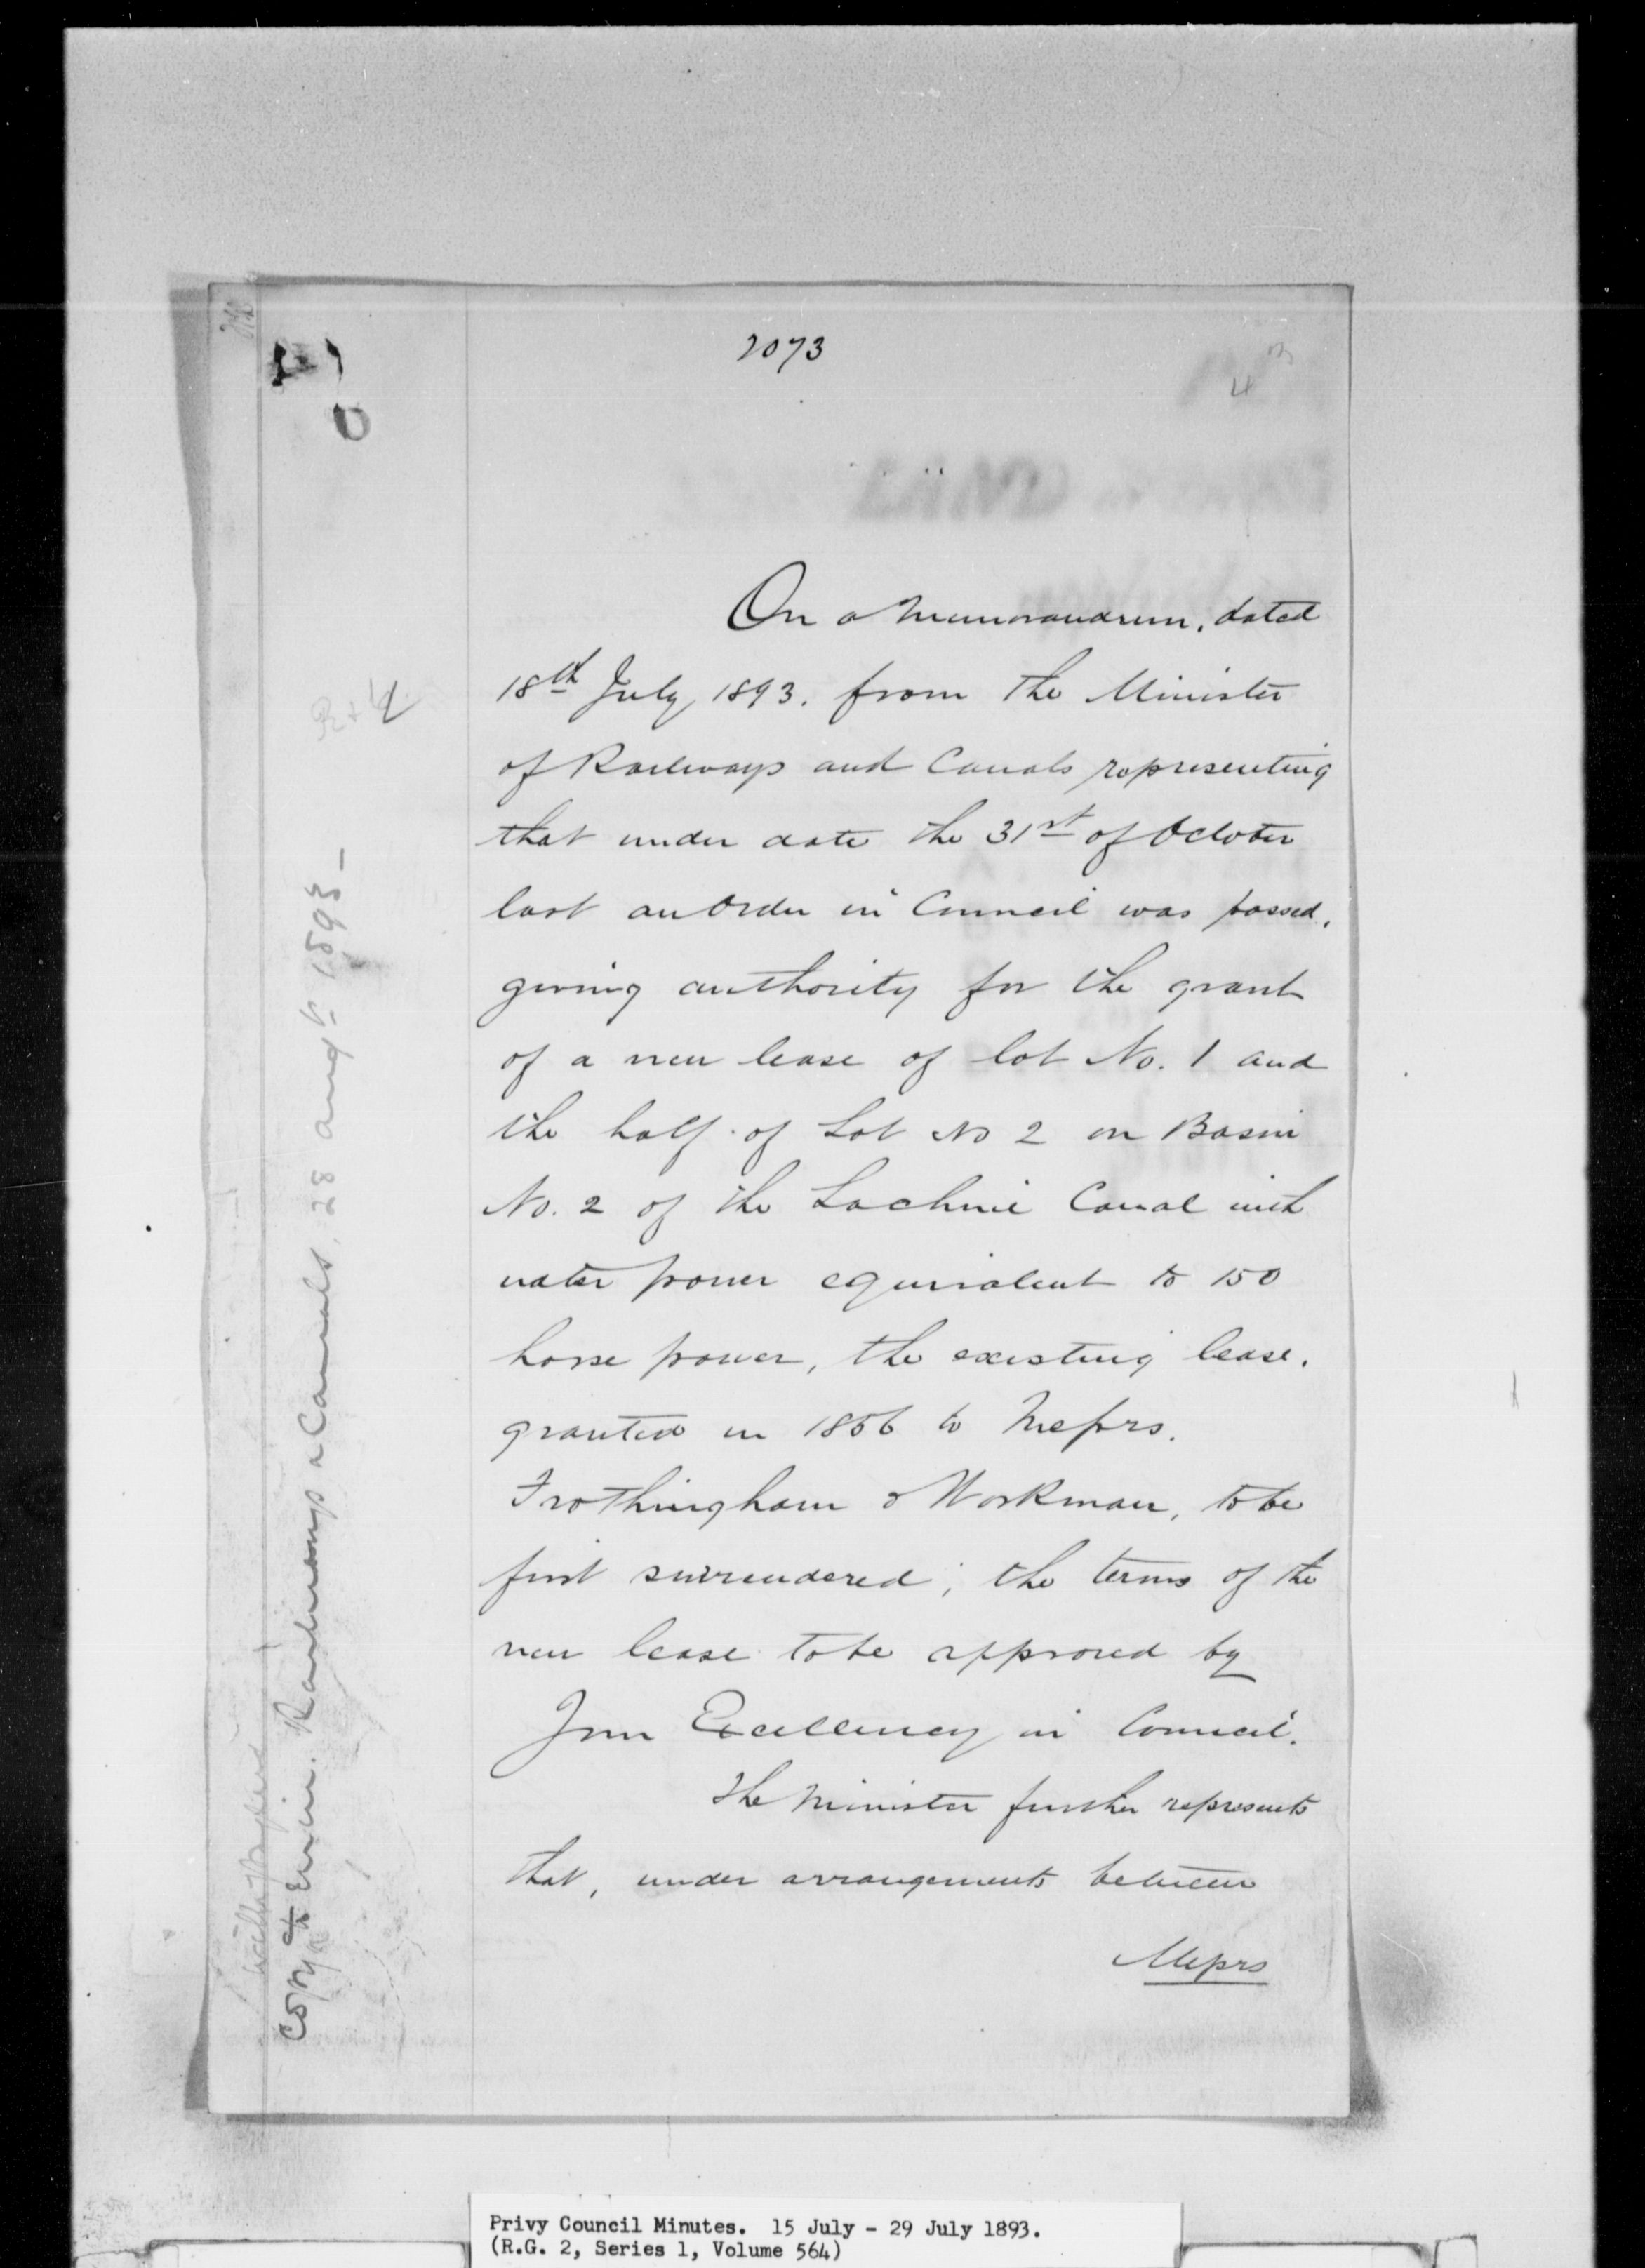 2073
4
On a Memorandum, dated
18th July 1893. from the Minister
of Railways and Canals representing
that under date the 31st of October
last an Order in Council was passed,
giving authority for the grant
of a new lease of lot No. 1 and
the half of Lot No 2 on Basin
No. 2 of the Lachine Canal with
water power equivalent to 150
horse power, the existing lease,
granted in 1856 to Messrs.
Frothingham & Workman, to be
first surrendered; the terms of the
new lease to be approved by
Your Excellency in Council.
The Minister further represents
that, under arrangements between
Messrs
R & C
Copy to Min. Railways & Canals, 28 augt 1893 –
Privy Council Minutes. 15 July - 29 July 1893.
(R.G. 2, Series 1, Volume 564)